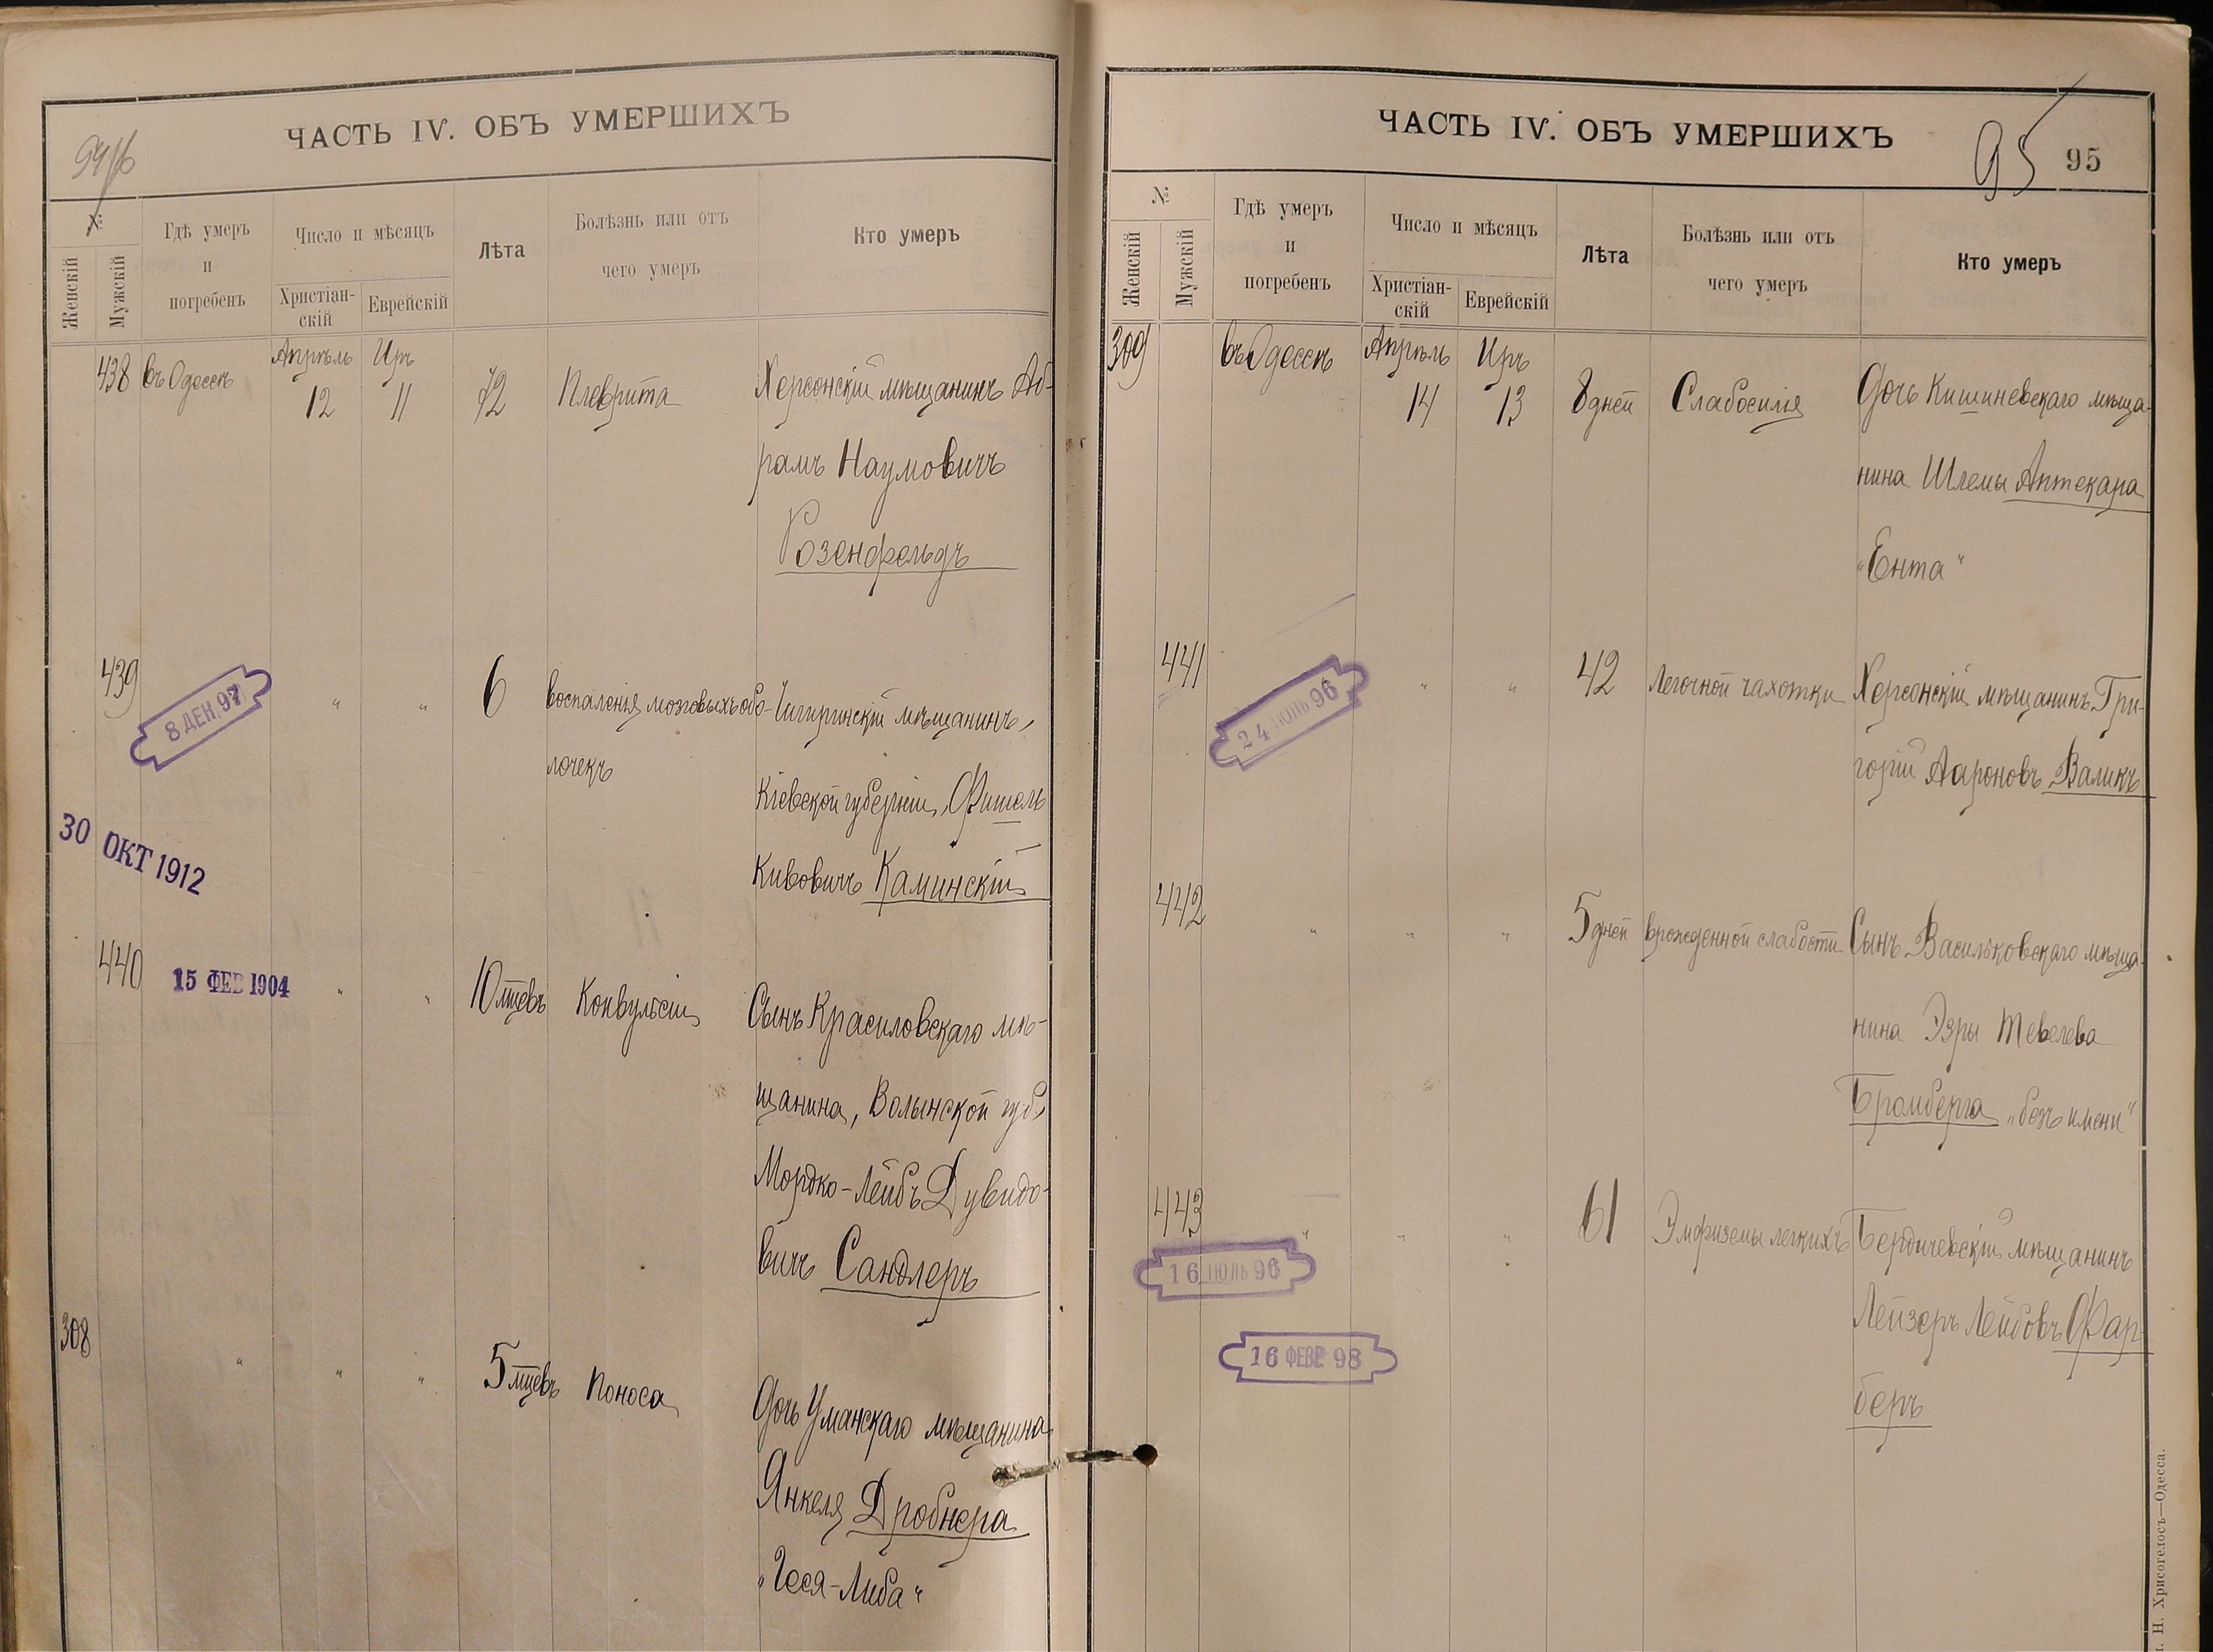 94об
ЧАСТЬ IV. ОБЪ УМЕРШИХЪ
№
Женскій
Мужскій
Гдѣ умеръ
и
погребенъ
Число и мѣсяцъ
Христіан-
скій
Еврейскій
Лѣта
Болѣзнь или отъ
чего умеръ
Кто умеръ
438 въ Одессѣ Апрѣль Иръ
12 11 72 Плеврита Херсонскій мѣщанинъ Аб-
рамъ Наумовичъ
Розенфельдъ
439 " " 6 воспаленія мозговыхъ обо- Чигиринскій мѣщанинъ,
лочекъ
8 ДЕК. 97
Кіевской губерніи, Фишель
Кивовичъ Каминскій
30 ОКТ 1912
440 15 ФЕВ 1904 " " 10 мцевъ Конвульсіи Сынъ Красиловскаго мѣ-
щанина, Волынской губ.
Мордко-Лейбъ Дувидо-
вичъ Сандлеръ
308 " " " 5 мцевъ Поноса Дочь Уманскаго мѣщанина
Янкеля Дробнера
"Геся-Либа"
ЧАСТЬ IV. ОБЪ УМЕРШИХЪ
95 95
№
Женскій
Мужскій
Гдѣ умеръ
и
погребенъ
Число и мѣсяцъ
Христіан-
скій
Еврейскій
Лѣта
Болѣзнь или отъ
чего умеръ
Кто умеръ
309 въ Одессѣ Апрѣль Иръ
14 13 8 дней Слабосилія Дочь Кишиневскаго мѣща-
нина Шлемы Аптекара
"Ента"
441 " " 42 Легочной чахотки Херсонскій мѣщанинъ Гри-
24 ИЮНЬ 96
горій Аароновъ Валикъ
442 " " " 5 дней врожденной слабости Сынъ Васильковскаго мѣща-
нина Эзры Тевелева
Бромберга "безъ имени"
443 " " " 61 Эмфиземы легкихъ Бердичевскій мѣщанинъ
16 ІЮЛЬ 96
Лейзеръ Лейбовъ Фар-
16 ФЕВР. 98
беръ
Н. Хрисогелосъ—Одесса.